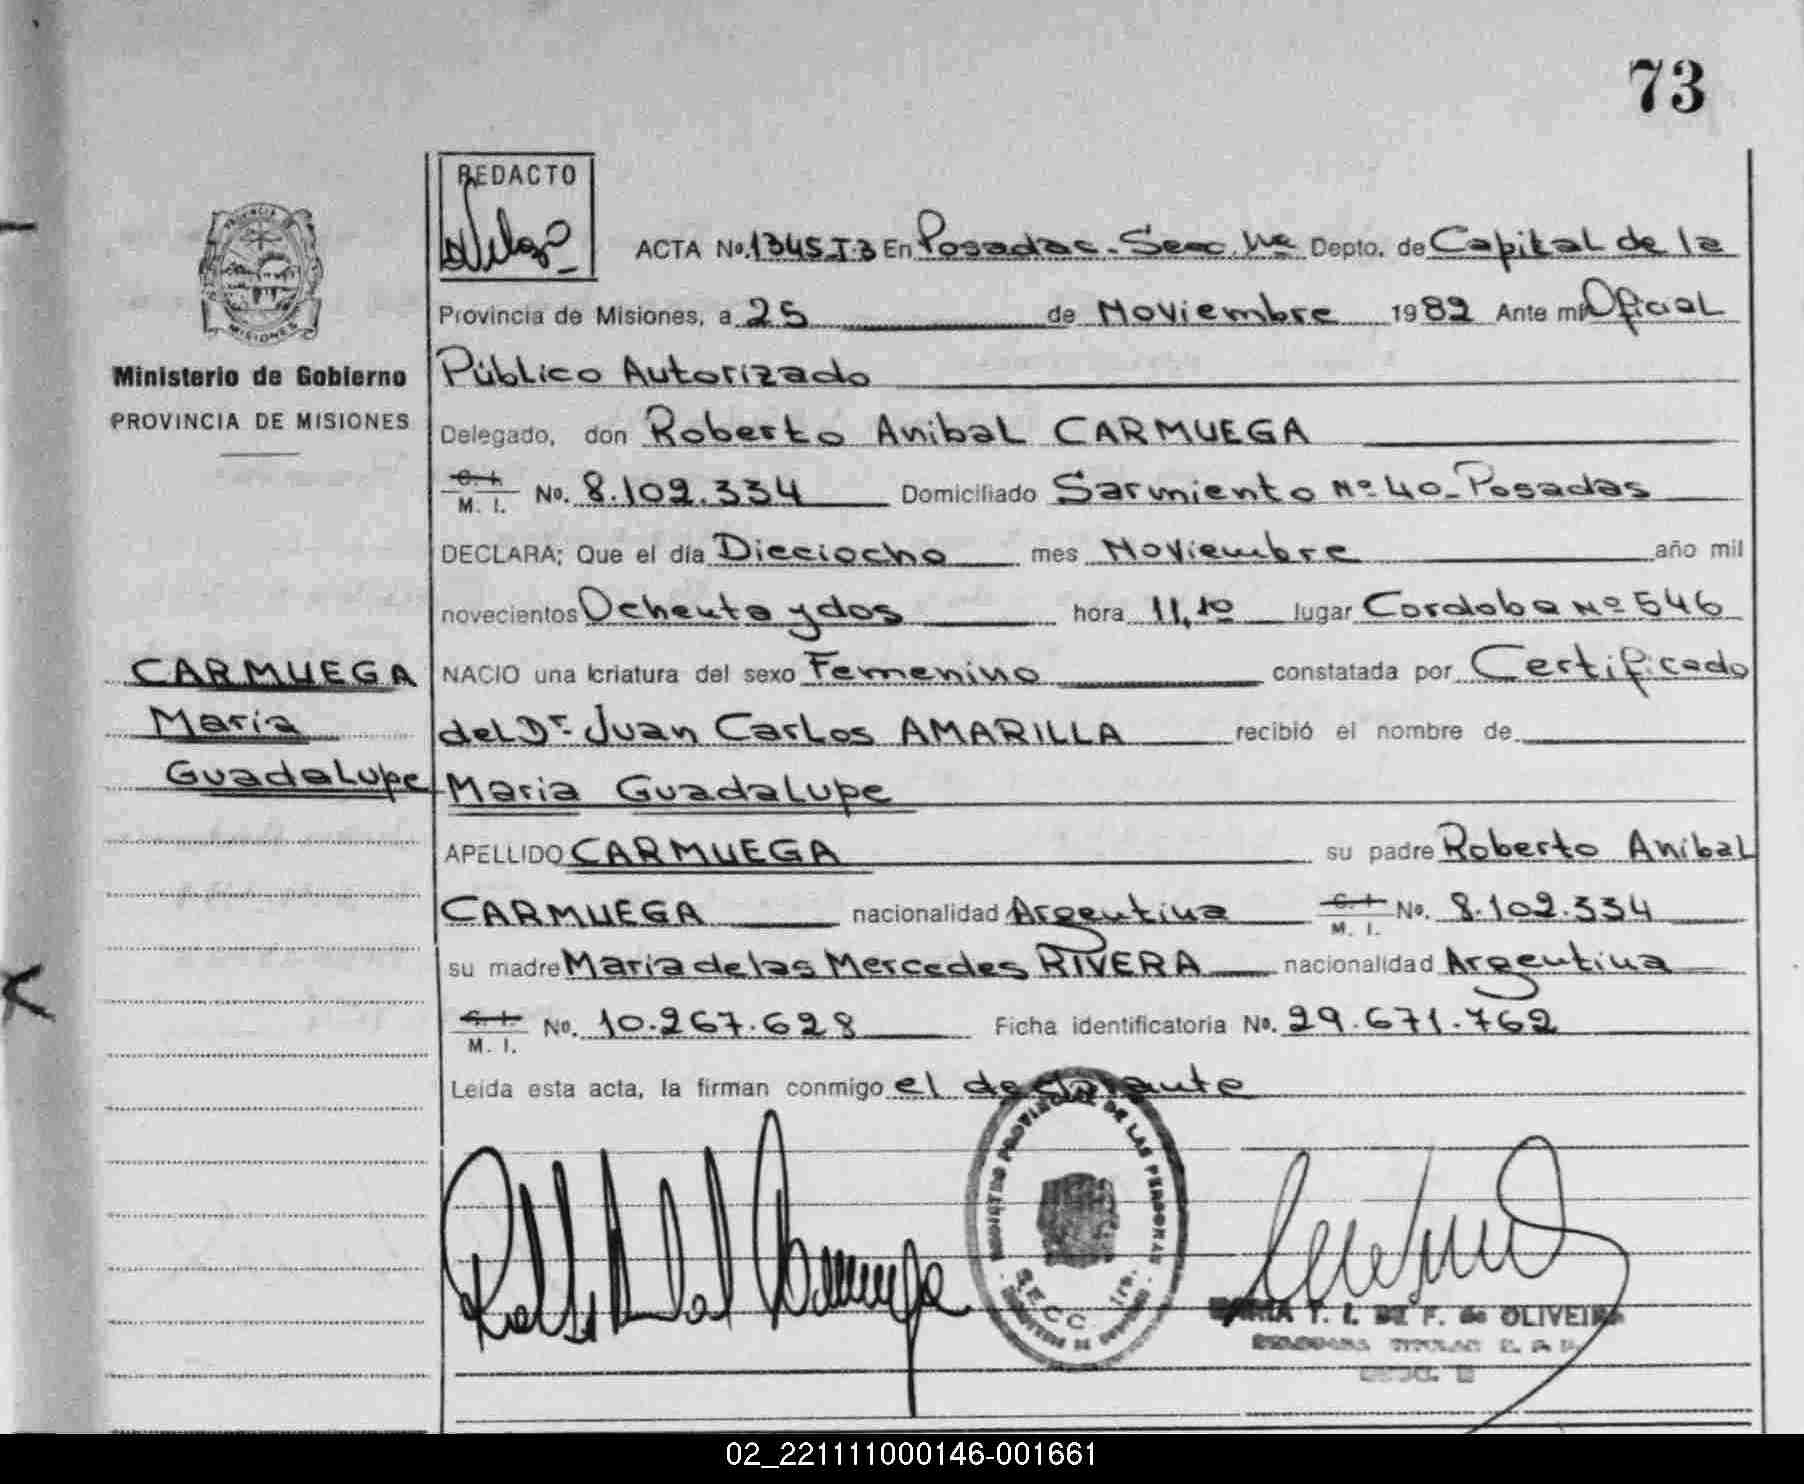 73
REDACTO
ACTA No. 1345 T.3 En Posadas - Secc. 1ra Depto. de Capital de la
Provincia de Misiones, a 25 de Noviembre 1982 Ante mi Oficial
Público Autorizado
Delegado, don Roberto Anibal CARMUEGA
C. I.
M. I. No. 8.102.334 Domiciliado Sarmiento Nº 40 - Posadas
DECLARA; Que el día Dieciocho mes Noviembre año mil
novecientos Ochenta y dos hora 11,10 lugar Cordoba Nº 546
NACIO una criatura del sexo Femenino constatada por Certificado
del Dr. Juan Carlos AMARILLA recibió el nombre de
Maria Guadalupe
APELLIDO CARMUEGA su padre Roberto Anibal
CARMUEGA nacionalidad Argentina C. I. No. 8.102.334
M. I.
su madre Maria de las Mercedes RIVERA nacionalidad Argentina
C. I.
M. I. No. 10.267.628 Ficha identificatoria No. 29.671.762
Leida esta acta, la firman conmigo el declarante
PROVINCIA DE
MISIONES
Ministerio de Gobierno
PROVINCIA DE MISIONES
CARMUEGA
Maria
Guadalupe
REGISTRO PROVINCIAL DE LAS PERSONAS
SECC. 1ra.
T. I. DE F. de OLIVEIRA
TITULAR
02_221111000146-001661